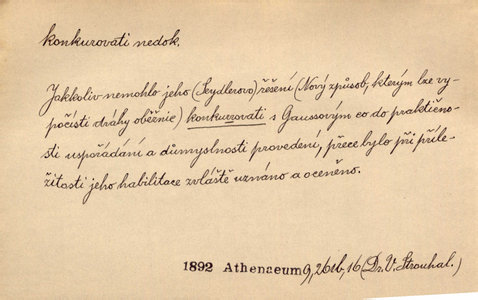 konkurovati nedok.
Jakkoliv nemohlo jeho (Seydlerovo) řešení (Nový způsob, kterým lze vy-
počísti dráhy oběžnic) konkurovati s Gaussovým co do praktično-
sti uspořádání a důmyslnosti provedení, přece bylo při příle-
žitosti jeho habilitace zvláště uznáno a oceněno.
1892 Athenaeum 9, 261b, 16 (Dr. V. Strouhal.)